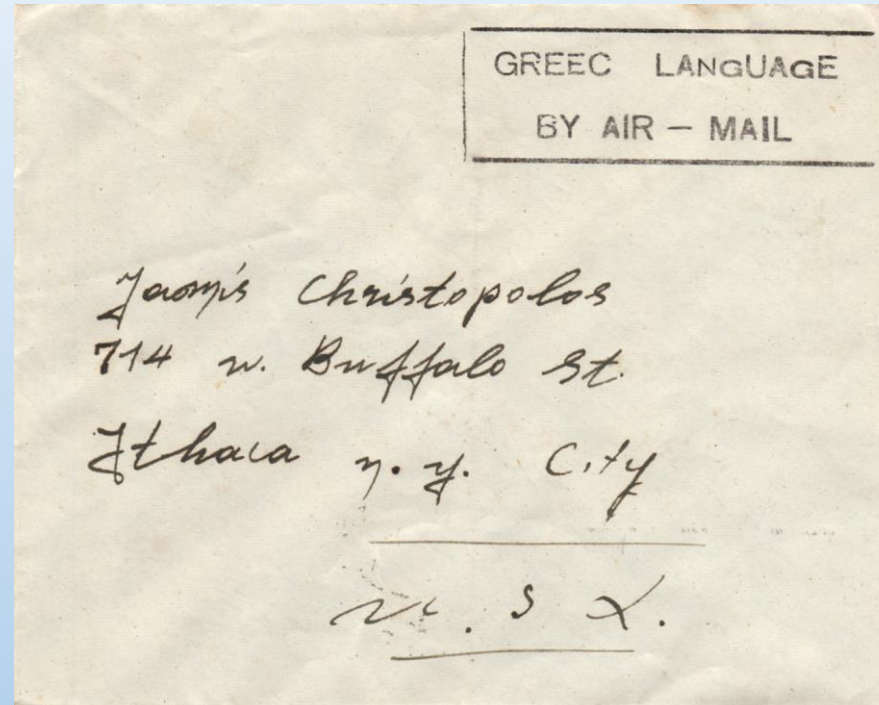 GREEC LANGUAGE
BY AIR — MAIL
Jaonis Christopolos
714 w. Buffalo St.
Ithaca n.y. City
U. S A.